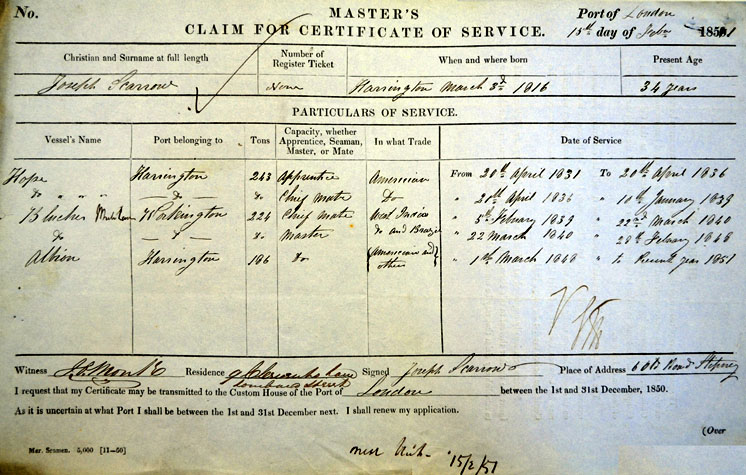 No. MASTER'S Port of London
CLAIM FOR CERTIFICATE OF SERVICE. 15th day of Feby 1851
Christian and Surname at full length Number of Register Ticket When and where born Present Age
Joseph Scarrow None Harrington March 3d 1816 34 years
PARTICULARS OF SERVICE.
Vessel's Name Port belonging to Tons Capacity, whether Apprentice, Seaman, Master, or Mate In what Trade Date of Service
Hope Harrington 243 Apprentice American From 20th April 1831 To 20th April 1836
Do " " " — Do — Do Chief Mate Do " 21st April 1836 " 10th January 1839
Blucher Workington 224 Chief Mate West India " 5th February 1839 " 22nd March 1840
Do — " — Do Master Do and Brazil " 22 March 1840 " 28th February 1848
Albion Harrington 196 Do {American and others} " 1st March 1848 " to Present year 1851
Witness Residence Signed Joseph Scarrow Place of Address 6 Old Road Stepney
Lombard Street
I request that my Certificate may be transmitted to the Custom House of the Port of London between the 1st and 31st December, 1850.
As it is uncertain at what Port I shall be between the 1st and 31st December next. I shall renew my application.
(Over
Mar. Seamen. 5,000 [11—50]
15/2/51